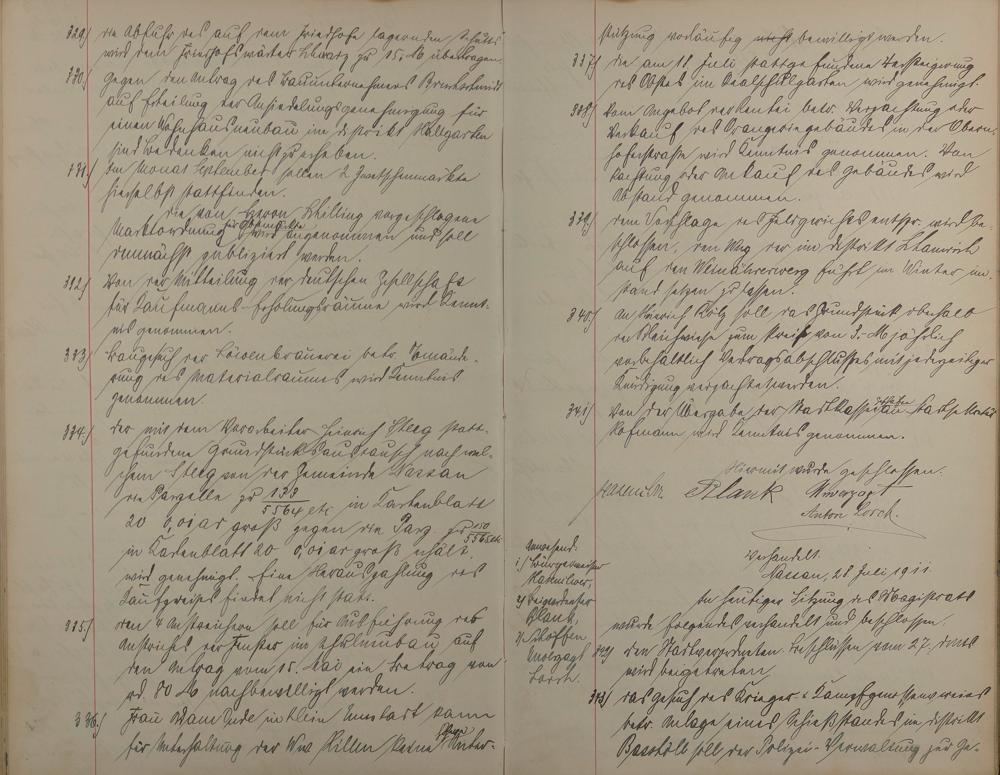 329) die Abfuhr des auf dem Friedhofe lagernden Schutts
wird dem Friedhofswärter Schwarz zu 15,- M übertragen.
330) gegen den Antrag des Bauunternehmers
auf Erteilung der Ansiedelungsgenehmigung für
einen Wohnhausneubau im Distrikt Hollgarten
sind Bedenken nicht zu erheben.
331) Im Monat September sollen 2 Zwetschenmärkte
hierselbst stattfinden.
die von Herrn Schilling vorgeschlagene
Marktordnung für Obstmärkte wird angenommen und soll
demnächst publiziert werden.
332) Von der Mitteilung der deutschen Gesellschaft
für Kaufmanns-Erholungsräume wird Kennt-
nis genommen.
333) Baugesuch der Löwenbrauerei betr. Umände-
rung des Materialraumes wird Kenntnis
genommen.
334) der mit dem Vorarbeiter Heinrich Steeg statt-
gefundene Grundstücksaustausch nach wel-
chem Steeg von der Gemeinde Nassau
die Parzelle zu 138/5564 etc in Kartenblatt
20 0,01 ar groß gegen die Parz. zu 150/5565 etc
in Kartenblatt 20 0,01 ar groß erhält.
wird genehmigt. Eine Herauszahlung des
Kaufpreises findet nicht statt.
335) den Anstreichern soll für Ausführung des
Anstrichs der Fenster im Schulneubau auf
den Antrag vom 15. Mai ein Betrag von
rd. 80 M nachbewilligt werden.
336) Frau in Klein kann
für Unterhaltung der Ww Killen keine Unter-
stützung vorläufig bewilligt werden.
337) die am 11 Juli stattgefundene Versteigerung
des Obstes im Realschulgarten wird genehmigt.
338) Vom Angebot betr. Verpachtung oder
Verkauf des Orangeriegebäudes in der Obern-
hoferstrasse wird Kenntnis genommen. Von
Pachtung oder Ankauf des Gebäudes wird
Abstand genommen.
339) dem Vorschlage des Feldgerichts entspr. wird be-
schlossen, den Weg der im Distrikt
auf den Weinährerweg führt im Winter in-
stand setzen zu lassen.
340) An Heinrich Kölz soll das Grundstück oberhalb
der zum Preise von 3,- M jährlich
vorbehaltlich Vertragsabschlusses mit jederzeitiger
Kündigung verpachtet werden.
341) Von der Übergabe der Stadtkasse an Stadtsekretär
Hofmann wird Kenntnis genommen.
Hiermit wurde geschlossen.
Hasenclever Plank Unverzagt
Anton Lorch.
Verhandelt
Nassau, 28 Juli 1911
Anwesend:
1) Bürgermeister
Hasenclever,
2) Beigeordneter
Plank,
3) Schöffen
Unverzagt
Lorch.
In heutiger Sitzung des Magistrats
wurde folgendes verhandelt und beschlossen.
342) den Stadtverordneten-Beschlüssen vom 27. dmts
wird beigetreten
343) das Gesuch des Krieger & Kampfgenossenvereins
betr. Anlage eines Schießstandes im Distrikt
soll der Polizei-Verwaltung zur Ge-